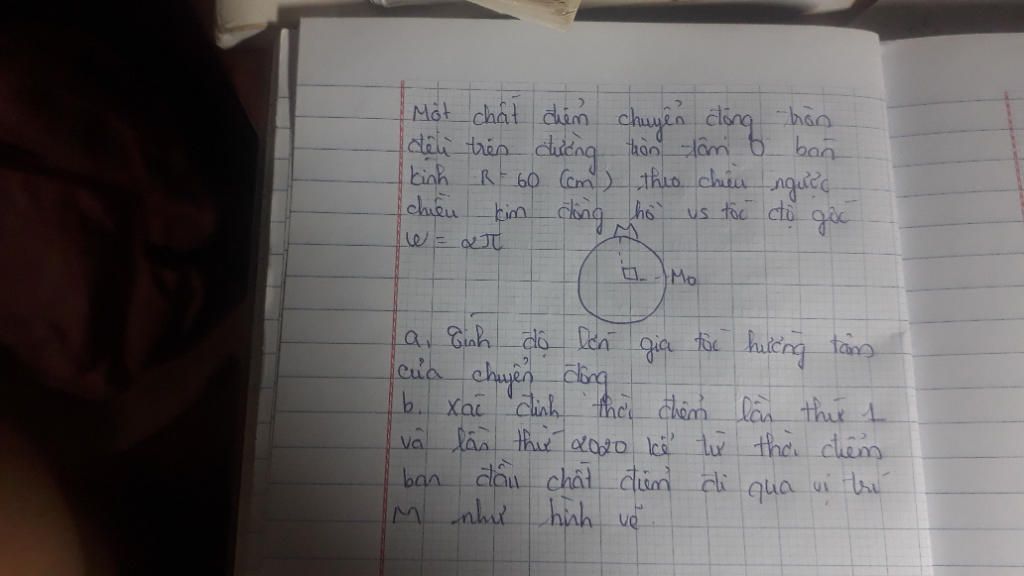 Một chất điểm chuyển động tròn
đều trên đường tròn tâm O bán
kính R = 60 (cm) theo chiều ngược
chiều kim đồng hồ vs tốc độ góc
ω = 2π
M
M0
a, Tính độ lớn gia tốc hướng tâm
của chuyển động
b. Xác định thời điểm lần thứ 1
và lần thứ 2020 kể từ thời điểm
ban đầu chất điểm đi qua vị trí
M như hình vẽ.